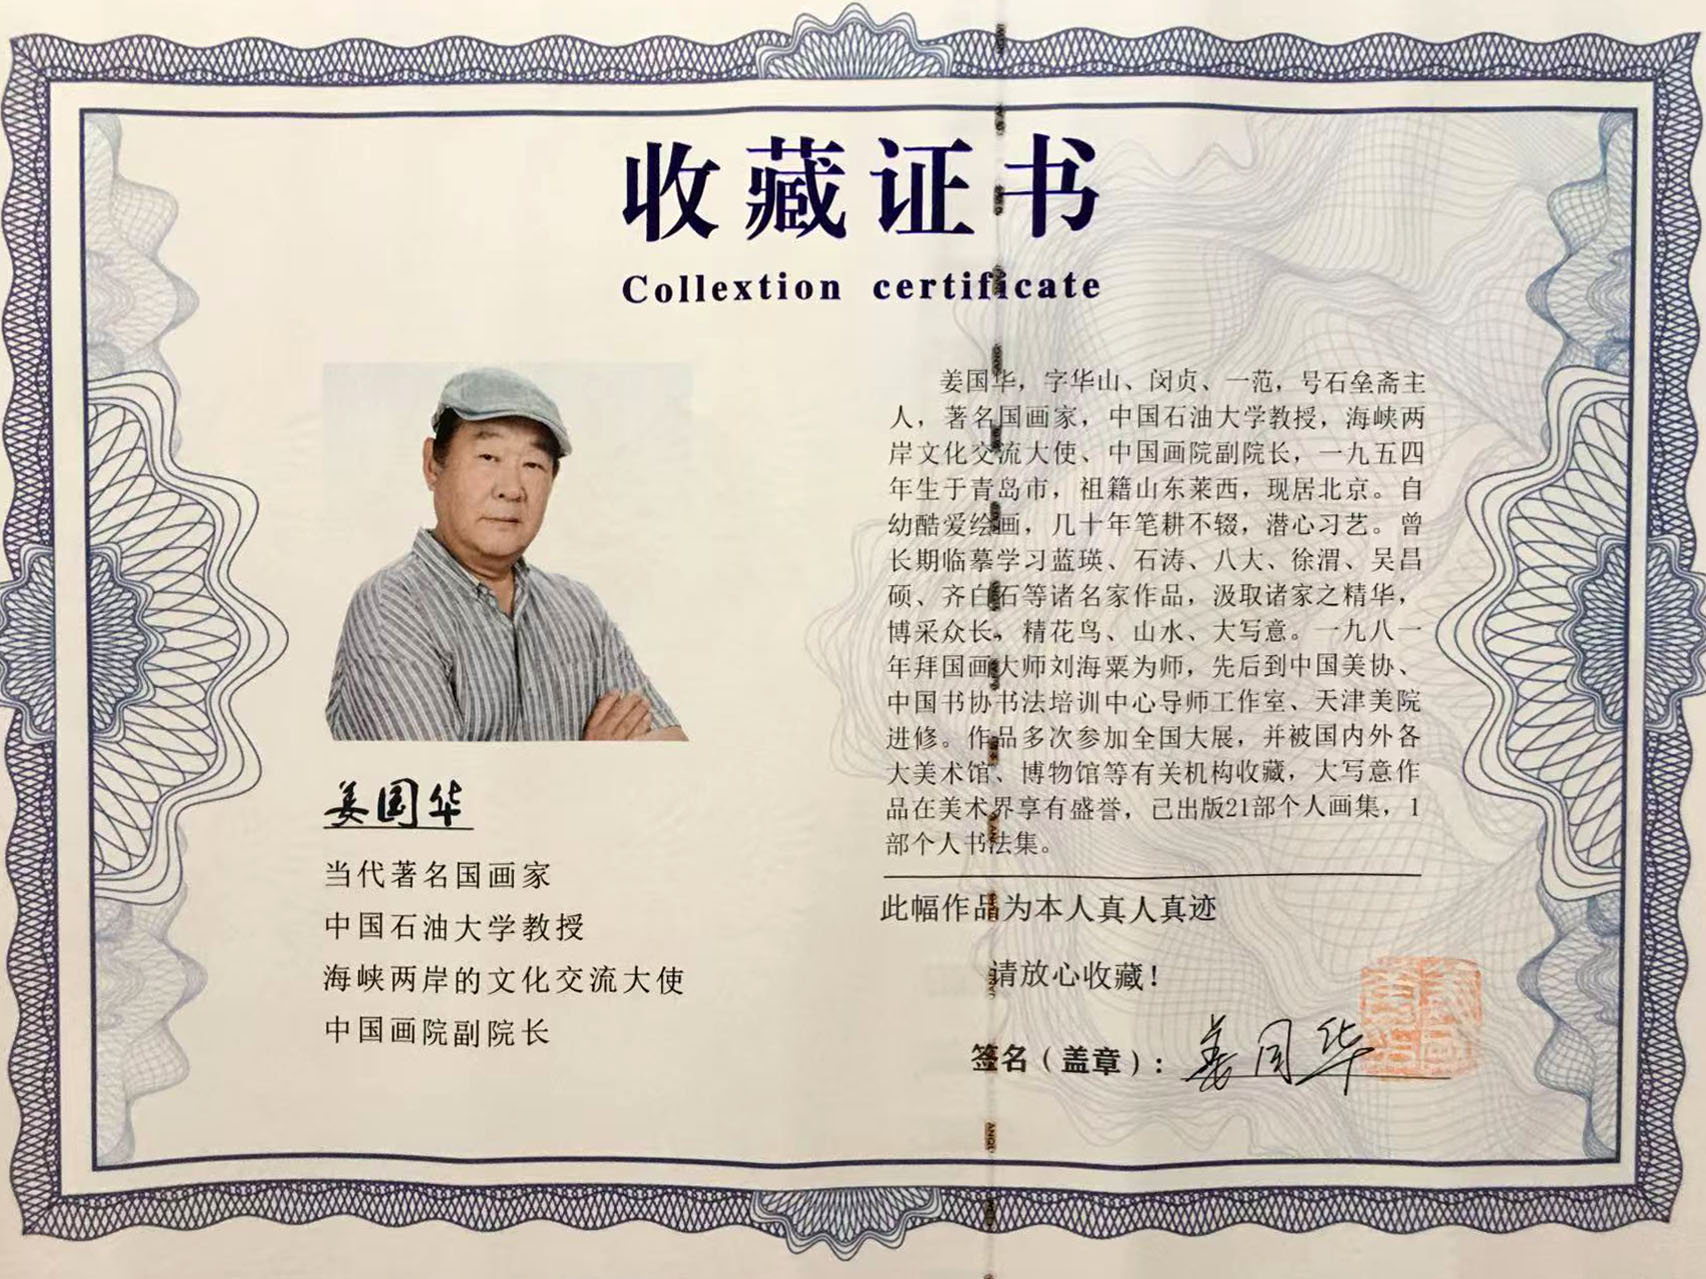 收藏证书
Collextion certificate
姜国华
当代著名国画家
中国石油大学教授
海峡两岸的文化交流大使
中国画院副院长
姜国华，字华山、闵贞、一范，号石垒斋主
人，著名国画家，中国石油大学教授，海峡两
岸文化交流大使、中国画院副院长，一九五四
年生于青岛市，祖籍山东莱西，现居北京。自
幼酷爱绘画，几十年笔耕不辍，潜心习艺。曾
长期临摹学习蓝瑛、石涛、八大、徐渭、吴昌
硕、齐白石等诸名家作品，汲取诸家之精华，
博采众长，精花鸟、山水、大写意。一九八一
年拜国画大师刘海粟为师，先后到中国美协、
中国书协书法培训中心导师工作室、天津美院
进修。作品多次参加全国大展，并被国内外各
大美术馆、博物馆等有关机构收藏，大写意作
品在美术界享有盛誉，已出版21部个人画集，1
部个人书法集。
此幅作品为本人真人真迹
请放心收藏！
签名（盖章）：姜国华